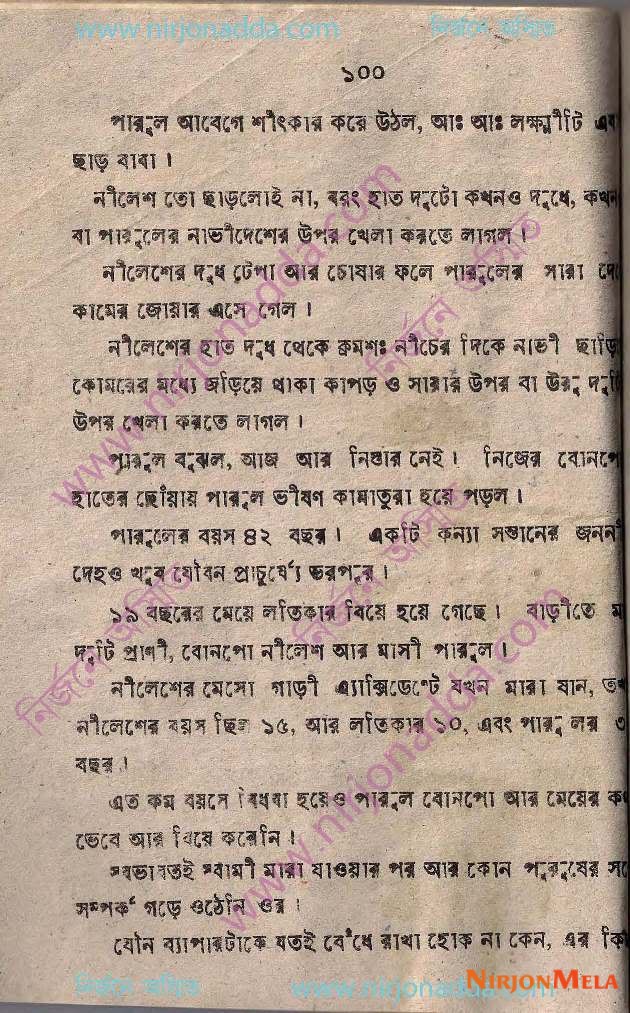 www.nirjonadda.com নির্জনে অসিত
১০০
পারুল আবেগে শীৎকার করে উঠল, আঃ আঃ লক্ষ্মীটি
ছাড় বাবা ।
নীলেশ তো ছাড়লোই না, বরং হাত দুটো কখনও দুধে,
বা পারুলের নাভীদেশের উপর খেলা করতে লাগল ।
নীলেশের দুধ টেপা আর চোষার ফলে পারুলের সারা
কামের জোয়ার এসে গেল ।
নীলেশের হাত দুধ থেকে ক্রমশঃ নীচের দিকে নাভী
কোমরের মধ্যে জড়িয়ে থাকা কাপড় ও সায়ার উপর বা উরু
উপর খেলা করতে লাগল ।
পারুল বুঝল, আজ আর নিস্তার নেই । নিজের
হাতের ছোঁয়ায় পারুল ভীষণ কামাতুরা হয়ে পড়ল ।
পারুলের বয়স ৪২ বছর । একটি কন্যা সন্তানের
দেহও খুব যৌবন প্রাচুর্য্যে ভরপুর ।
১৯ বছরের মেয়ে লতিকার বিয়ে হয়ে গেছে । বাড়ীতে
দুটি প্রাণী, বোনপো নীলেশ আর মাসী পারুল ।
নীলেশের মেসো গাড়ী এ্যাক্সিডেণ্টে যখন মারা যান,
নীলেশের বয়স ছিল ১৫, আর লতিকার ১০, এবং পারুলর
বছর ।
এত কম বয়সে বিধবা হয়েও পারুল বোনপো আর মেয়ের
ভেবে আর বিয়ে করেনি ।
স্বভাবতই স্বামী মারা যাওয়ার পর আর কোন পুরুষের
সম্পর্ক গড়ে ওঠেনি ওর ।
যৌন ব্যাপারটাকে যতই বেঁধে রাখা হোক না কেন, এর
নির্জনে অসিত www.nirjonadda.com
NIRJONMELA